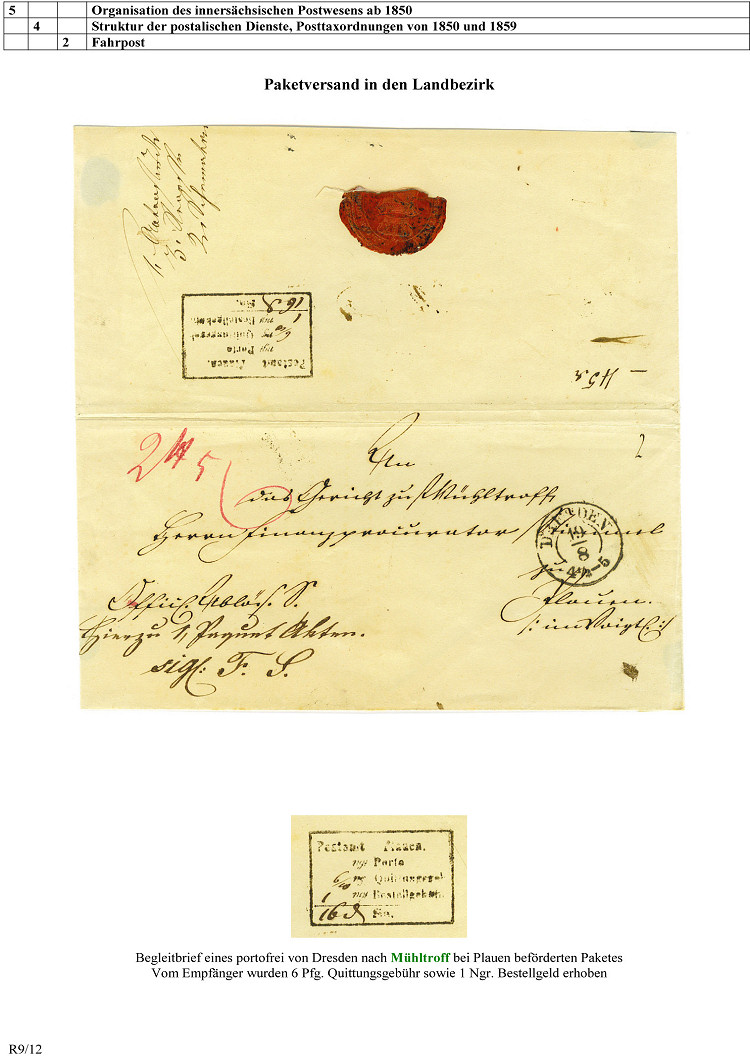 5 Organisation des innersächsischen Postwesens ab 1850
4 Struktur der postalischen Dienste, Posttaxordnungen von 1850 und 1859
2 Fahrpost
Paketversand in den Landbezirk
Postamt Plauen.
ngr Porto
ng Quittungsgel.
1 ngr Bestellgebühr.
16 Sa.
45
245
An
das Gericht zu Mühltroff
Herrn Finanzprocurator
DRESDEN
19
8
4½-5
zu
Plauen.
Offic. Ablös. S.
Hierzu 1, Paquet Akten.
/: im Voigtl. :/
sigl: F. S.
Postamt Plauen.
ngr Porto
6/10 ng Quittungsgel.
1 ngr Bestellgebühr.
16 Sa.
Begleitbrief eines portofrei von Dresden nach Mühltroff bei Plauen beförderten Paketes
Vom Empfänger wurden 6 Pfg. Quittungsgebühr sowie 1 Ngr. Bestellgeld erhoben
R9/12